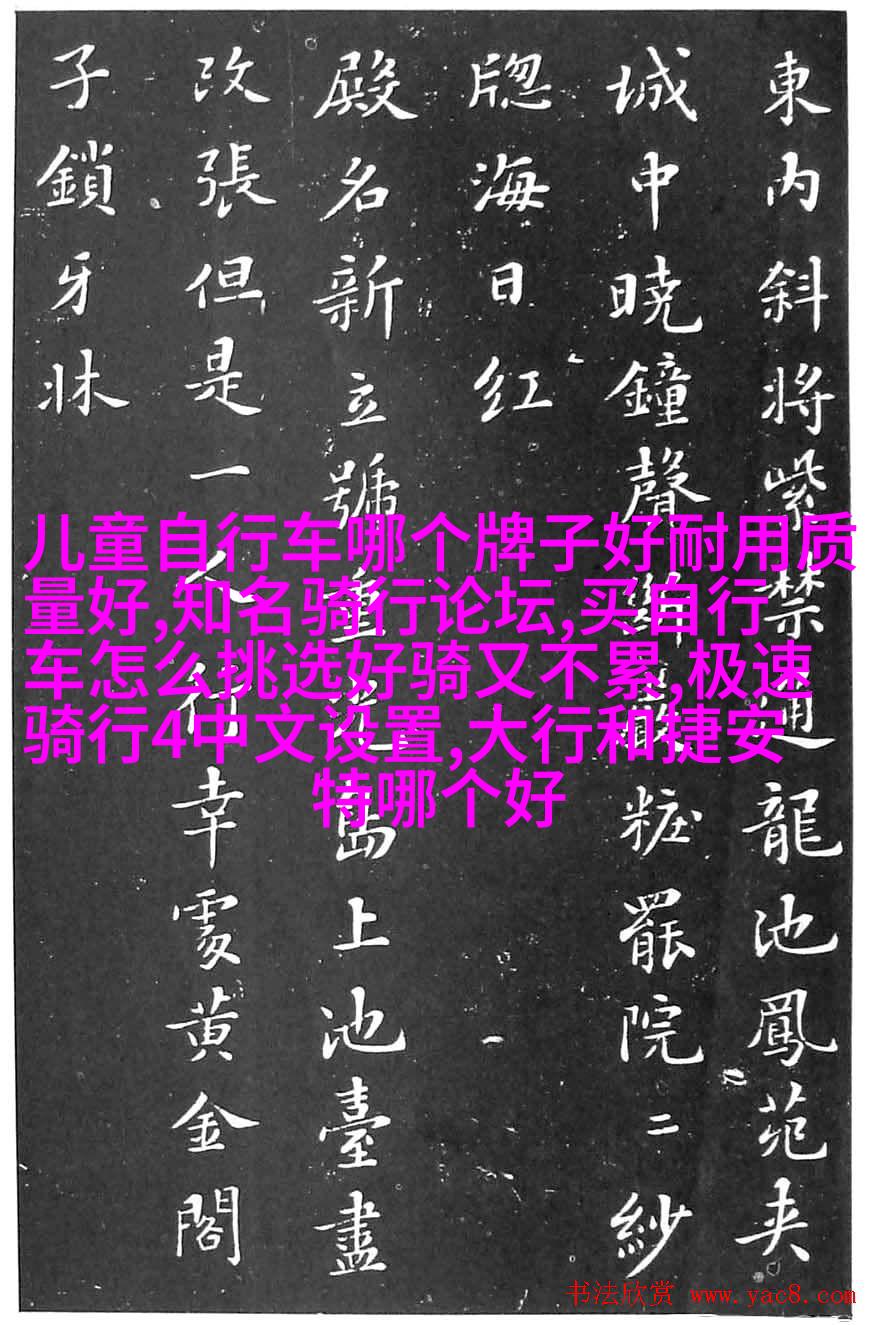 東内斜将紫禁通龍池鳳苑夹
城中暁鐘聲斷嚴粧罷院二紗
牎海日红
殿名新立號重光島上池臺盡
改張但是一人行幸處黄金閣
子鎖牙牀
儿童自行车哪个牌子好耐用质
量好,知名骑行论坛,买自行
车怎么挑选好骑又不累,极速
骑行4中文设置,大行和捷安
特哪个好
书法欣赏 www.yac8.com